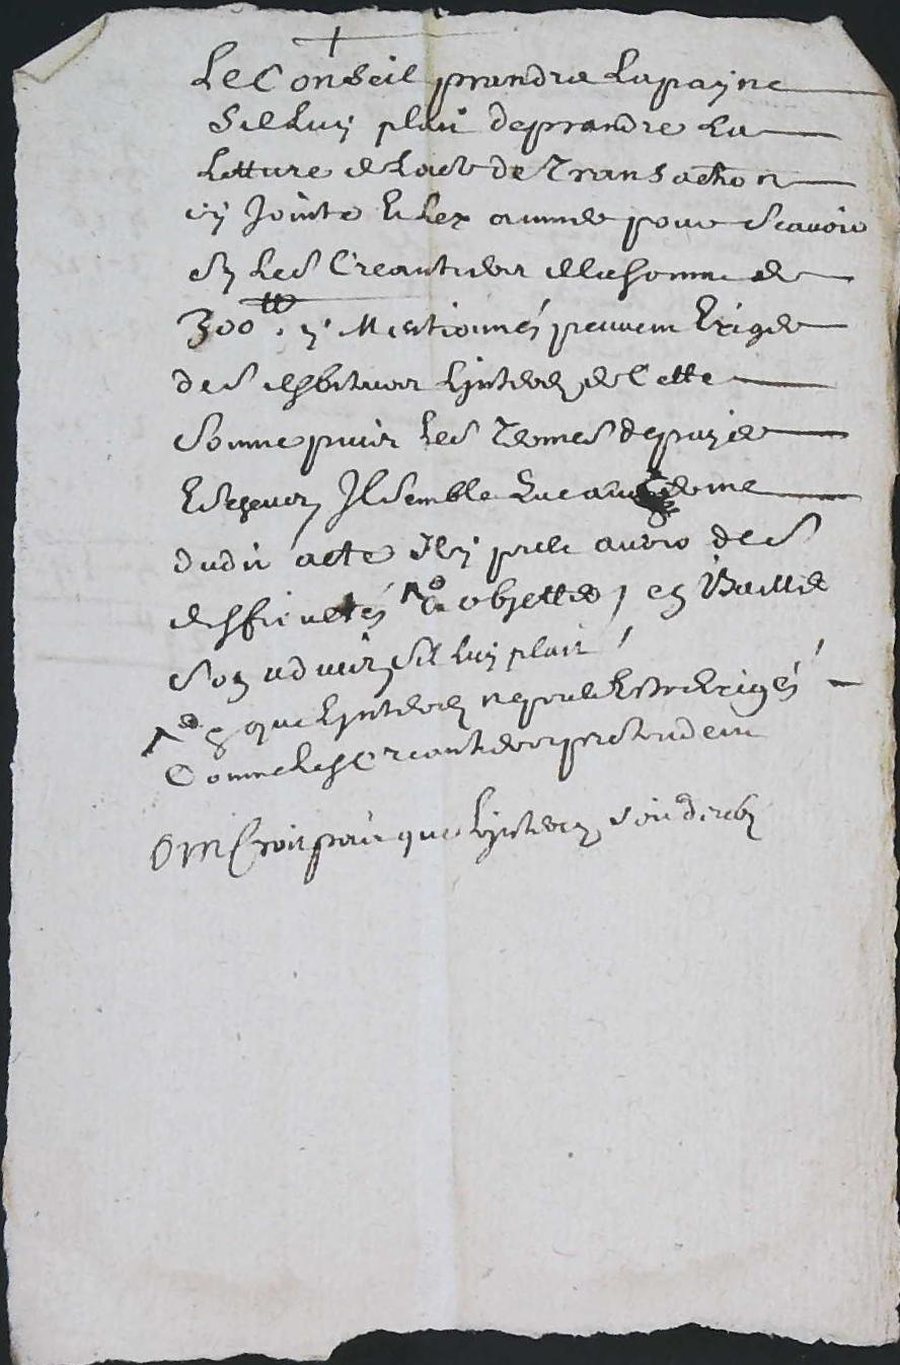 Le Conseil prandra La payne
Sil Luy plait de prandre La
Letture de Lacte de Transaction
cy Jointe Et Lexaminer pour scavoir
sy Les Creantiers de La somme de
300 ₶ y Mentionnés peuvent Exiger
des desbiteurs L'jnterest de Cette
somme puis Les Termes de payer
Escheus, Jl semble Eu au
dudit acte Jl y peut avoir des
desficultés a objetter, en Baillera
son advis, sil Luy plait /
que L'jnterest ne peut Estre Exigés /
Comme Les Creantiers pretendent
Croit pas que L'jnterest soit deub